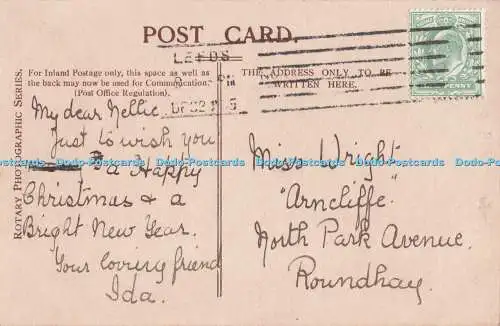 POST CARD.
LEEDS
For Inland Postage only, this space as well as
the back may now be used for Communication.
(Post Office Regulation).
THE ADDRESS ONLY TO BE
WRITTEN HERE.
ROTARY PHOTOGRAPHIC SERIES.
My dear Nellie
Just to wish you
a Happy
Christmas & a
Bright New Year.
Your loving friend
Ida.
Miss Wright
"Arncliffe"
North Park Avenue.
Roundhay.
Dodo-Postcards Dodo-Postcards Dodo-Postcards Dodo-Postcards Dodo-Postcards